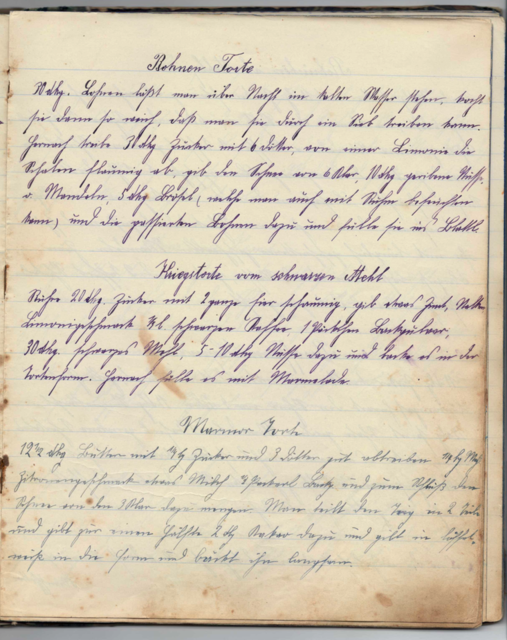 Bohnen Torte
30 dkg. Bohnen läßt man über Nacht im kalten Wasser stehen, kocht
sie dann so weich, daß man sie durch ein Sieb treiben kann.
Hernach treibe 30 dkg Zucker mit 6 Dotter, von einer Limonie die
Schalen flaumig ab, gib den Schnee von 6 Klar, 10 dkg geriebene Nüsse
o. Mandeln, 5 dkg Brösel, welche man auch mit Rum befeuchten
kann, und die passierten Bohnen dazu und fülle sie ins Blattl.
Kriegstorte vom schwarzen Mehl
Rühre 20 dkg. Zucker mit 2 ganze Eier schaumig, gib etwas Zimt,
Limonigeschmack, schwarzen Kaffee 1 Päckchen Backpulver,
30 dkg. schwarzes Mehl, 5-10 dkg Nüsse dazu und backe es in der
Tortenform. Hernach fülle es mit Marmelade
Marmor Torte
12½ dkg Butter mit ¼ Zucker und 3 Dotter gut abtreiben
Zitronengeschmack etwas Milch und zum Schluß den
Schnee von den 3 Klar dazu mengen. Man teilt den Teig in 2 Teile
und gibt zur einen Hälfte 2 dkg Kakao dazu und gibt in löffel-
weiß in die Form und bäckt ihn langsam.